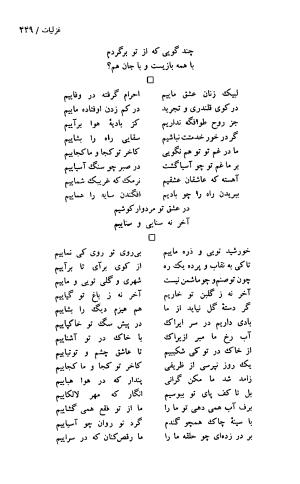 غزلیات / ۴۴۹
چند گویی که از تو برگردم
با همه بازیست و با جان هم؟
لبیک زنان عشق ماییم احرام گرفته در وفاییم
در کوی قلندری و تجرید در کم زدن اوفتاده ماییم
جز روح طوافگه نداریم کز بادیهٔ هوا برآییم
گر در خور خدمتت نباشیم سقایی راه را بشاییم
ما در غم تو تو هم نگویی کاخر تو کجا و ما کجاییم
بر ما غم تو چو آسیا گشت در صبر چو سنگ آسیاییم
آهسته که عاشقان عشقیم نرمک که غریبک شماییم
ببریدن راه را چو بادیم افگندن سایه را هماییم
در عشق تو مردوار کوشیم
آخر نه سنایی و سناییم
خورشید تویی و ذره ماییم بی‌روی تو روی کی نماییم
تا کی به نقاب و پرده یک ره از کوی برآی تا برآییم
چون تو صنم و چو ما شمن نیست شهری و گلی تویی و ماییم
آخر نه ز گلبن تو خاریم آخر نه ز باغ تو گیاییم
گر دستهٔ گل نیاید از ما هم هیزم دیگ را بشاییم
بادی داریم در سر ایراک در پیش سگ تو خاکپاییم
آب رخ ما مبر ازیراک با خاک در تو آشناییم
از خاک در تو کی شکیبیم تا عاشق چشم و توتیاییم
یک روز نپرسی از ظریفی کاخر تو کجا و ما کجاییم
زامد شد ما مکن گرانی پندار که در هوا هباییم
بل تا کف پای تو ببوسیم انگار که مهر لالکاییم
برف آب همی دهی تو ما را ما از تو فقع همی گشاییم
با سینهٔ چاک همچو گندم گرد تو روان چو آسیاییم
بر در زده‌ای چو حلقه ما را ما رقص‌کنان که در سراییم